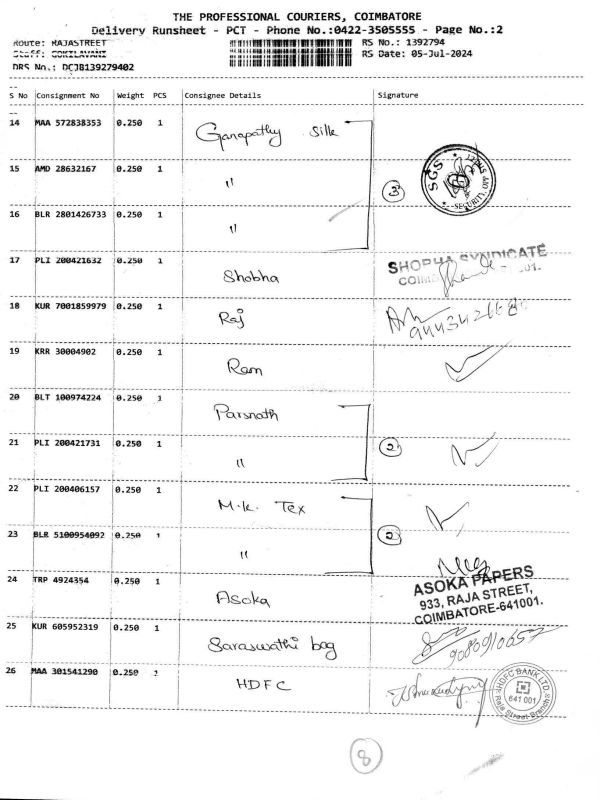 THE PROFESSIONAL COURIERS, COIMBATORE
Delivery Runsheet - PCT - Phone No.:0422-3505555 - Page No.:2
Route: RAJASTREET RS No.: 1392794
Staff: GOKILAVANI RS Date: 05-Jul-2024
DRS No.: DCJB139279402
--
S No Consignment No Weight PCS Consignee Details Signature
--
14 MAA 572838353 0.250 1 Ganapathy Silk
15 AMD 28632167 0.250 1 "
3
SGS STREET SECURITY, OPP
16 BLR 2801426733 0.250 1 "
17 PLI 200421632 0.250 1 Shobha
SHOBHA SYNDICATE
18 KUR 7001859979 0.250 1 Raj
19 KRR 30004902 0.250 1 Ram
20 BLT 100974224 0.250 1 Parsnath
21 PLI 200421731 0.250 1 "
2
22 PLI 200406157 0.250 1 M.K. Tex
23 BLR 5100954092 0.250 1 "
2
24 TRP 4924354 0.250 1 Asoka
ASOKA PAPERS
933, RAJA STREET,
COIMBATORE-641001.
25 KUR 605952319 0.250 1 Saraswathi bag
26 MAA 301541290 0.250 1 HDFC
HDFC BANK LTD.
641 001
Raja Street Branch
8